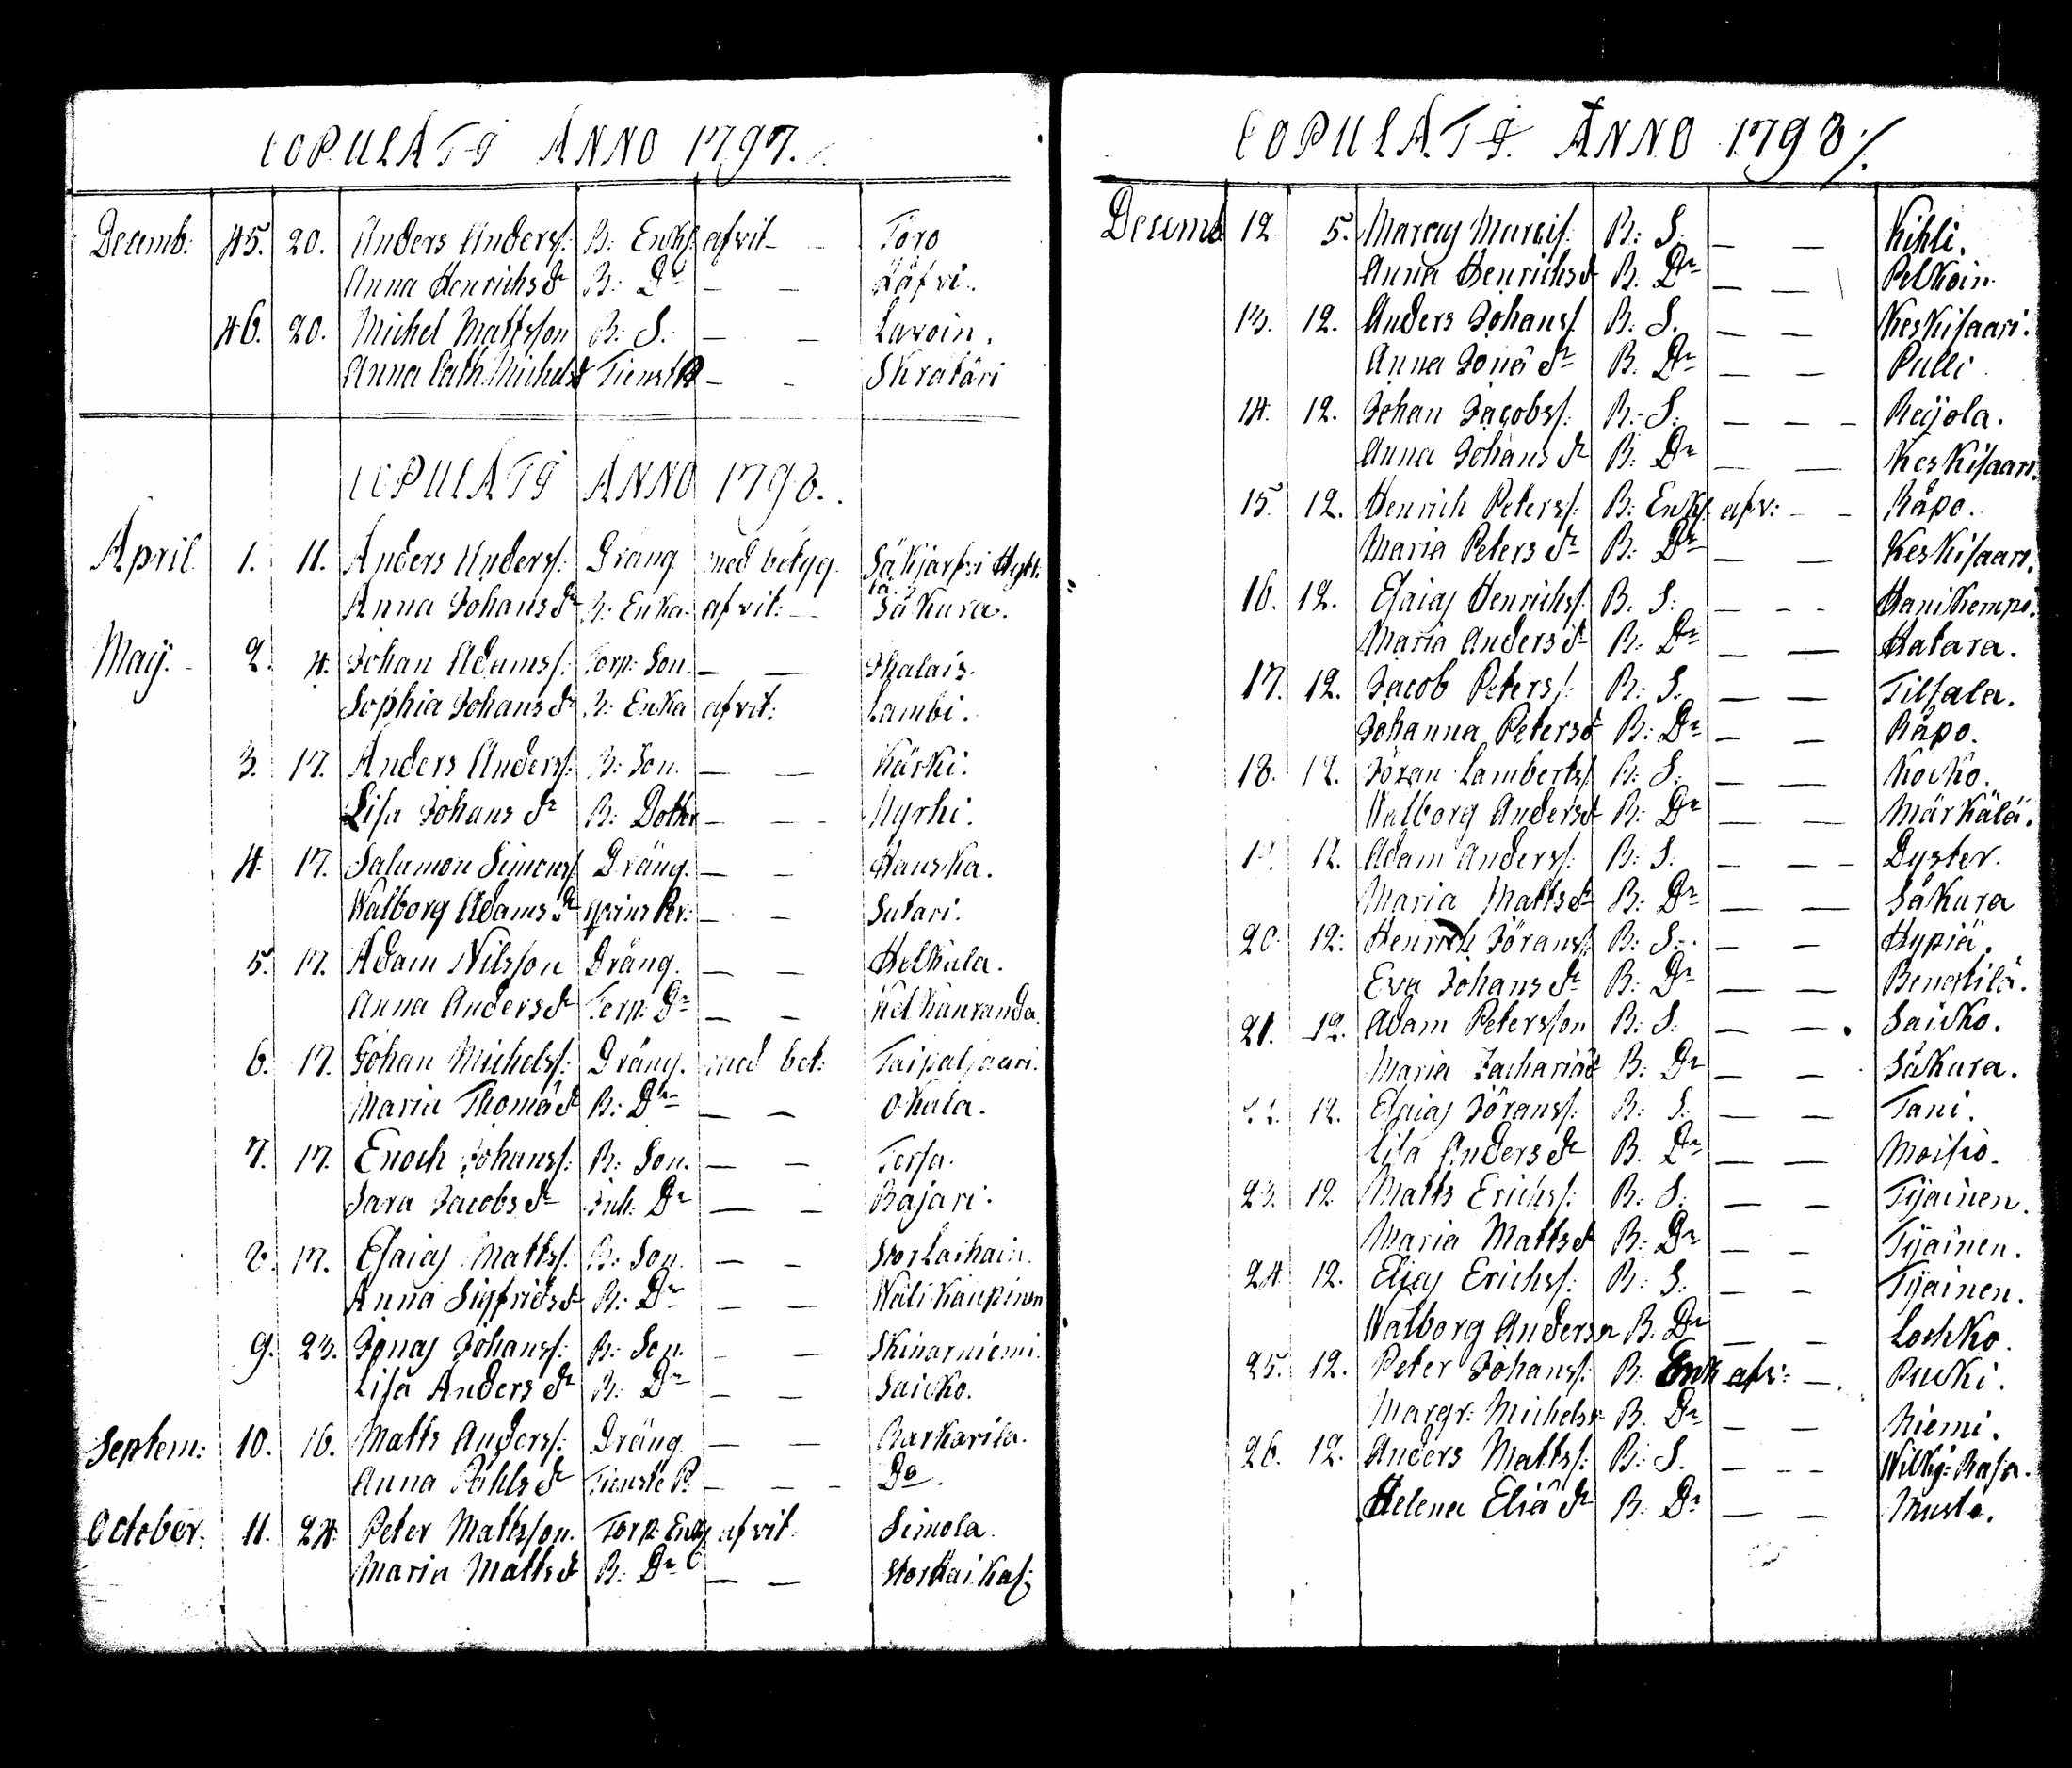 COPULATI ANNO 1797.
Decemb: 45. 20. Anders Anderss: B: Enkl: afvit — Toro
Anna Henrichs dr B: Dr — — Häfvi.
46. 20. Michel Mattsson B: S. — — Lavoin.
Anna Cath. Michelsd Tienst P — — Skratäri
COPULATI ANNO 1798.
April 1. 11. Anders Anderss: Dräng med betyg. Säkjärfvi Hylt:
Anna Johans dr B: Enka afvit: — Säkura.
Maij. 2. 4. Johan Adamss: Torp: Son. — — Ihalais.
Sophia Johans dr B: Enka afvit: Lambi.
3. 17. Anders Anderss: B: Son. — — Kärki.
Lisa Johans dr B: Dotter — — Hyrhi.
4. 17. Salamon Simonss Dräng. — — Hanska.
Walborg Adams dr — — Sutari.
5. 17. Adam Nilsson Dräng. — — Helkala.
Anna Anders dr Torp: Dr — — Kelkänranda.
6. 17. Johan Michelss: Dräng. med bet: Taipalsaari.
Maria Thomæ dr B: Dr — — Okala.
7. 17. Enoch Johanss: B: Son. — — Torsa.
Sara Jacobs dr Inh: Dr — — Rajari.
8. 17. Esaias Mattss: B: Son. — — StorLaihain.
Anna Sigfrids dr B: Dr — — Wäli Kaupinen
9. 23. Jonas Johanss: B: Son. — — Skinarniemi.
Lisa Anders dr B: Dr — — Saicko.
Septem: 10. 16. Matts Anderss: Dräng. — — Karkarila.
Anna Påhls dr Tienste P. — — — Do.
October. 11. 24. Peter Mattsson. Torp: Enkl afvit: Simola.
Maria Matts dr B: Dr — —
COPULATI ANNO 1798/.
Decemb 12. 5. Marcus Marcis: B: S. — — Kihli.
Anna Henrichs dr B. Dr — — Pelkoin
13. 12. Anders Johanss B: S. — — Keskisaari.
Anna Jonæ dr B. Dr — — Pulli
14. 12. Johan Jacobss: B: S: — — — Reijola.
Anna Johans dr B: Dr — — Keskisaari.
15. 12. Henrich Peterss: B: Enkl. afv: — — Räpo.
Maria Peters dr B: Dr — — Keskisaari.
16. 12. Esaias Henrichss: B. S: — — — Hanikempi.
Maria Anders dr B: Dr — — Hatara.
17. 12. Jacob Peterss: B: S. — — Tilsala.
Johanna Peters dr B: Dr — — Räpo.
18. 12. Jöran Lambertss B: S: — — Kocko.
Walborg Anders dr B: Dr — — Märkälä.
12. Adam Anderss: B: S. — — — Dyster.
Maria Matts dr B: Dr — — Säkura
20. 12. Henrich Jöranss: B: S. — — Hypiä.
Eva Johans dr B: Dr — — Benettilä.
21. 12. Adam Petersson B: S: — — Saicko.
Maria Zachariæ B: Dr — — Säkura.
12. Esaias Jöranss: B: S: — — Tani.
Lisa Anders dr B. Dr — — Moisio.
23. 12 Matts Erichss: B: S: — — Tijainen.
Maria Matts dr B: Dr — — Tijainen.
24 12. Elias Erichss: B: S. — — Tijainen.
Walborg Anders dr B. Dr — — Lochko.
25. 12. Peter Johanss: B. Enk afv: — Pucki.
Margr: Michels dr B. Dr — — Niemi.
26. 12. Anders Mattss: B: S. — — — Wilkj: Rasa.
Helena Eliæ dr B: Dr — — Musto.